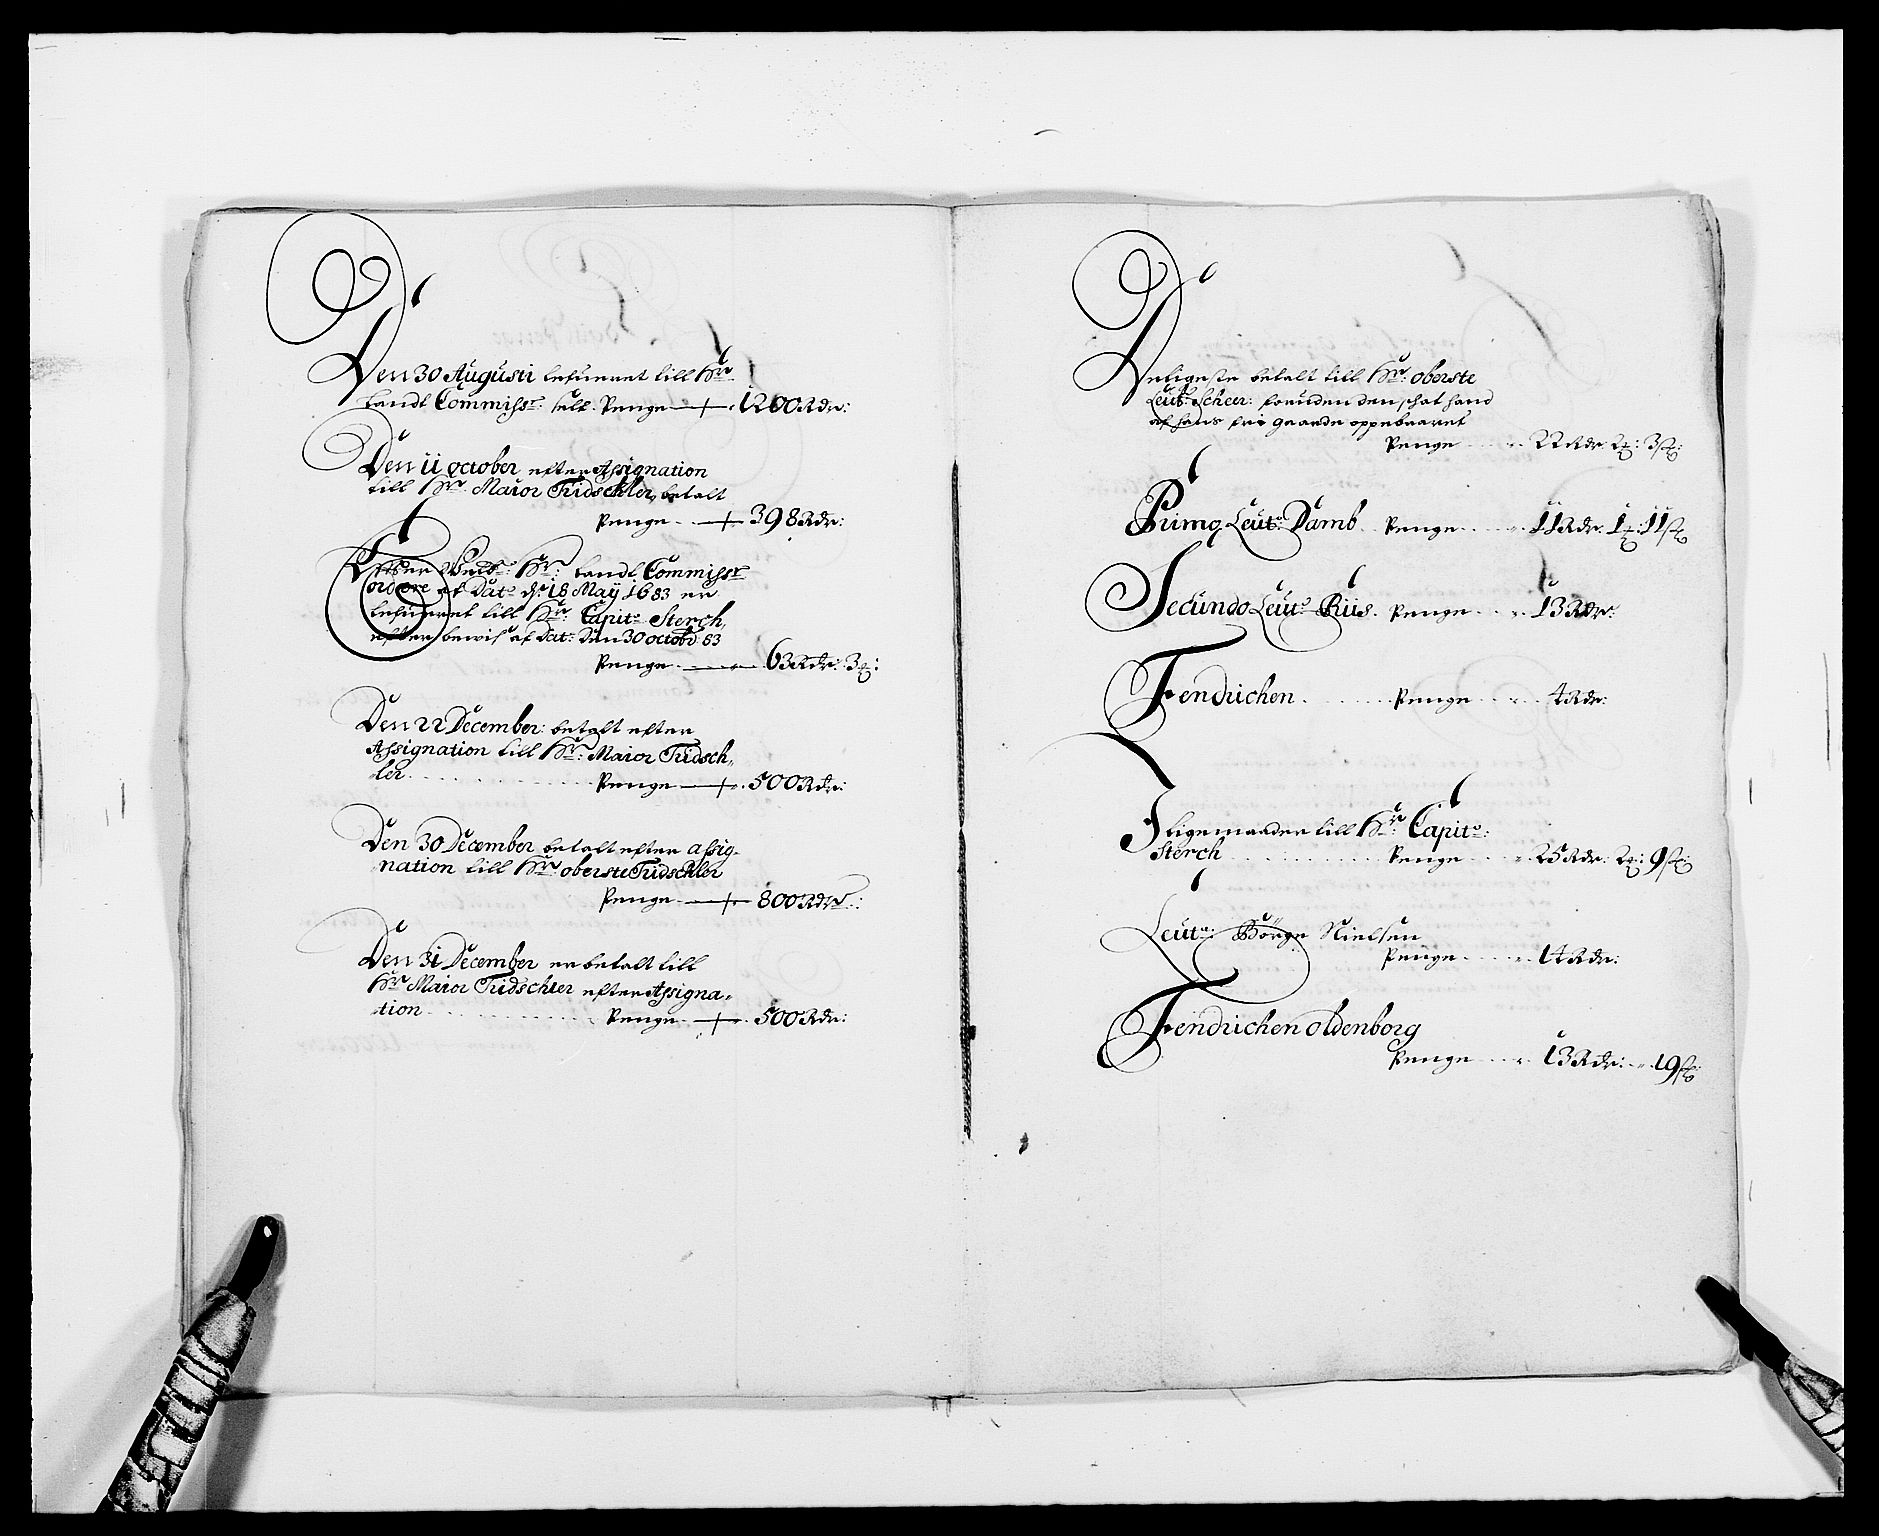 Den 30 Augusti lefueret till Hr:
Landt Commissr: self. Penge 1200 Rdr:
Den 11 october efter Assignation
till Hr Maior Tridschler, betalt
Penge 398 Rdr:
Efter Velb: Hr: Landt Commissr
ordre af Dato d: 18 Maÿ 1683 er
lefueret till Hr: Capit: Sterch,
efter bewis af Dat: Den 30 octobr 83
Penge 63 Rdr: 3 ₰:
Den 22 December: betalt efter
Assignation till Hr: Maior Tridsch-
ler Penge 500 Rdr:
Den 30 December betalt efter assig-
nation till Hr oberste Tridschler
Penge 800 Rdr:
Den 31 December er betalt till
Hr Maior Tridschler efter Assigna-
tion Penge 500 Rdr:
Deligeste betalt till Hr: oberste
Leut: Scheer: foruden den schat hand
af hans fri gaarde oppebaaret
Penge 22 Rdr 2 ₰: 3 sk:
Primo Leut: Damb Penge 11 Rdr: 1 ₰: 11 sk
Secundo Leut: Riis. Penge 13 Rdr:
Fendrichen Penge 4 Rdr:
Jligemaader till Hr: Capit:
Sterch Penge 25 Rdr: 2 ₰: 9 sk:
Leut: Börge Nielsen
Penge 14 Rdr:
Fendrichen oldenborg
Penge 13 Rdr: 19 sk: